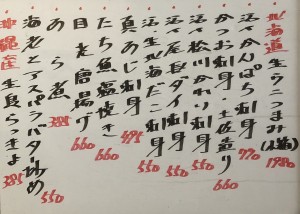 北海道生うにつまみ(小箱) 1980
江・かんぱち刺身 770
かつお刺身・土佐造り 660
江・松川かわり刺身 550
江・尾長ダイ刺身 550
江・生ホタテ刺身 550
真あじ刺身 495
たち魚塩焼き 660
目ひかり唐揚げ 660
あら煮 385
海老とアスパラバター炒め 550
沖縄産生島らっきょ 385